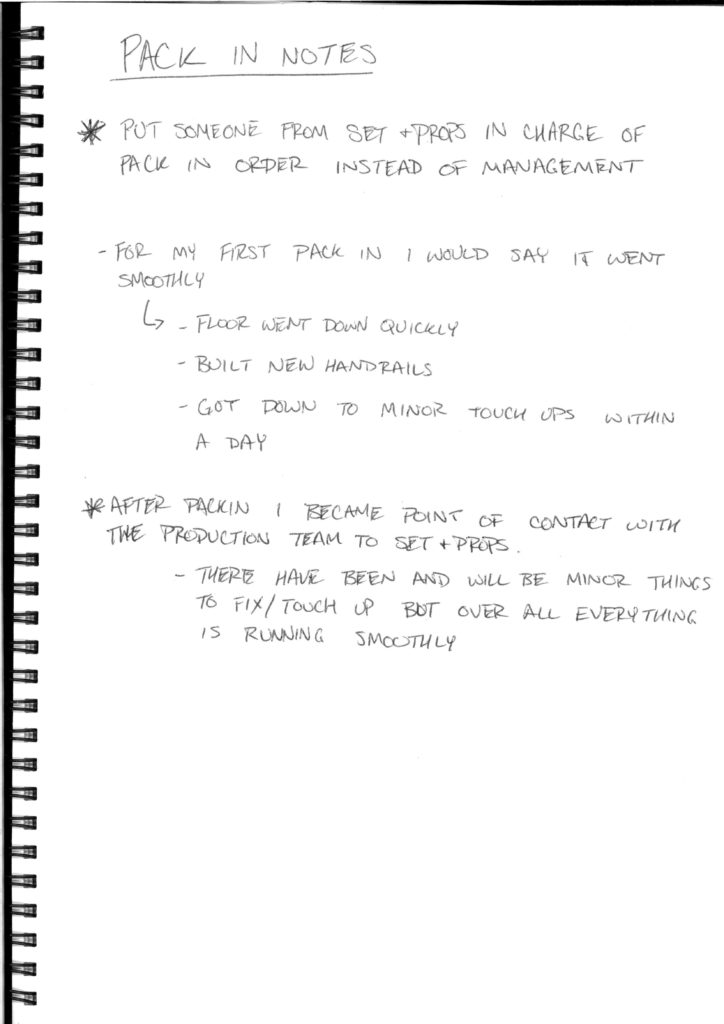 PACK IN NOTES
* PUT SOMEONE FROM SET + PROPS IN CHARGE OF
PACK IN ORDER INSTEAD OF MANAGEMENT
- FOR MY FIRST PACK IN I WOULD SAY IT WENT
SMOOTHLY
↳ - FLOOR WENT DOWN QUICKLY
- BUILT NEW HANDRAILS
- GOT DOWN TO MINOR TOUCH UPS WITHIN
A DAY
* AFTER PACKIN I BECAME POINT OF CONTACT WITH
THE PRODUCTION TEAM TO SET + PROPS.
- THERE HAVE BEEN AND WILL BE MINOR THINGS
TO FIX/TOUCH UP BUT OVER ALL EVERYTHING
IS RUNNING SMOOTHLY